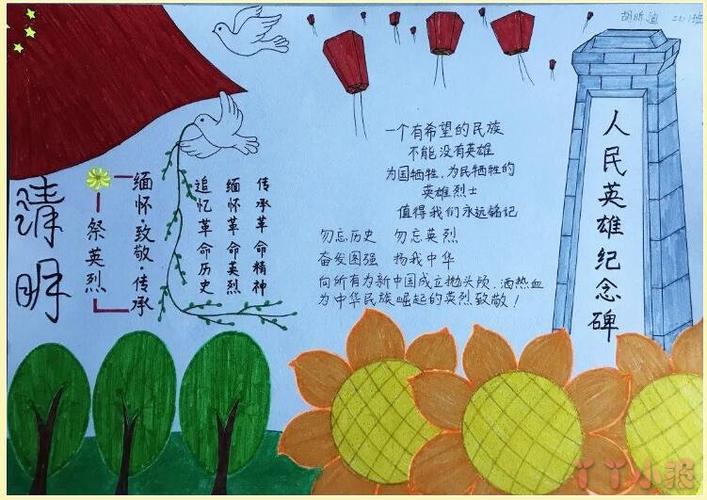 清明
祭英烈
缅怀·致敬·传承
追忆革命历史
缅怀革命英烈
传承革命精神
一个有希望的民族
不能没有英雄
为国牺牲,为民牺牲的
英雄烈士
值得我们永远铭记
勿忘历史 勿忘英烈
奋发图强 扬我中华
向所有为新中国成立抛头颅、洒热血
为中华民族崛起的英烈致敬!
人民英雄纪念碑
丫丫小报